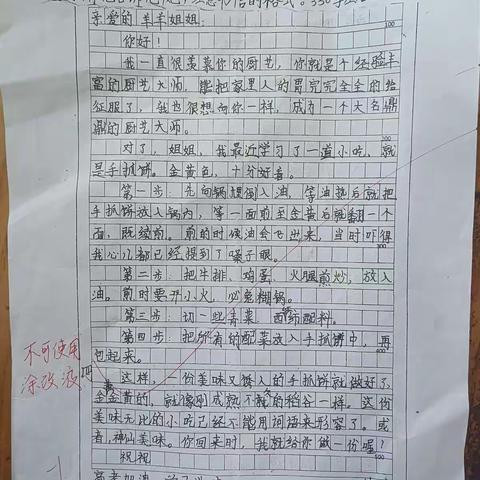 亲爱的羊羊姐姐:
你好!
我一直很羡慕你的厨艺,你就是个经验丰
富的厨艺大师,能把家里人的胃完完全全的给
征服了,我也很想向你一样,成为一个大名鼎
鼎的厨艺大师。
对了,姐姐,我最近学习了一道小吃,就
是手抓饼。金黄色,十分好看。
第一步:先向锅里倒入油,等油热后就把
手抓饼放入锅内,等一面煎至金黄后就翻一个
面,既续煎。煎的时候油会飞出来,当时吓得
我心儿都已经提到了嗓子眼。
第二步:把牛排、鸡蛋、火腿煎炒,放入
油。煎时要开小火,必免糊锅。
第三步:切一些青菜,西柿配料。
第四步:把所有的配菜放入手抓饼中,再
包起来。
不可使用
涂改液
这样,一份美味又馋人的手抓饼就做好了,
金金黄的,就像刚成熟不的稻谷一样。这份
美味无比的小吃己经不能用词语来形容了。或
者,神仙美味。你回来时,我就给你做一份喔?
祝祝